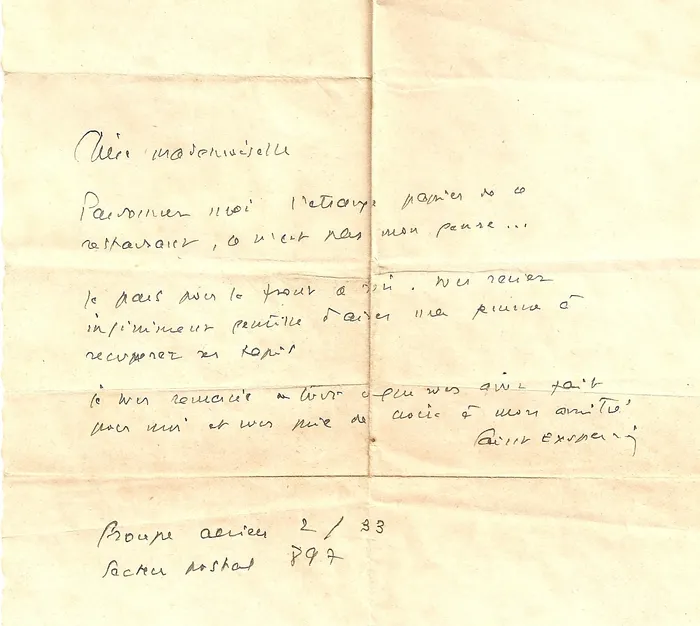 Chère mademoiselle
Pardonnez moi l'étrange papier de ce
restaurant, ce n'est pas mon genre...
Je pars pour le front ce soir. Vous seriez
infiniment gentille d'aider ma femme à
récupérer ses tapis
Je vous remercie de tout ce que vous avez fait
pour moi et vous prie de croire à mon amitié
Saint Exupéry
Groupe aérien 2/33
Secteur postal 897